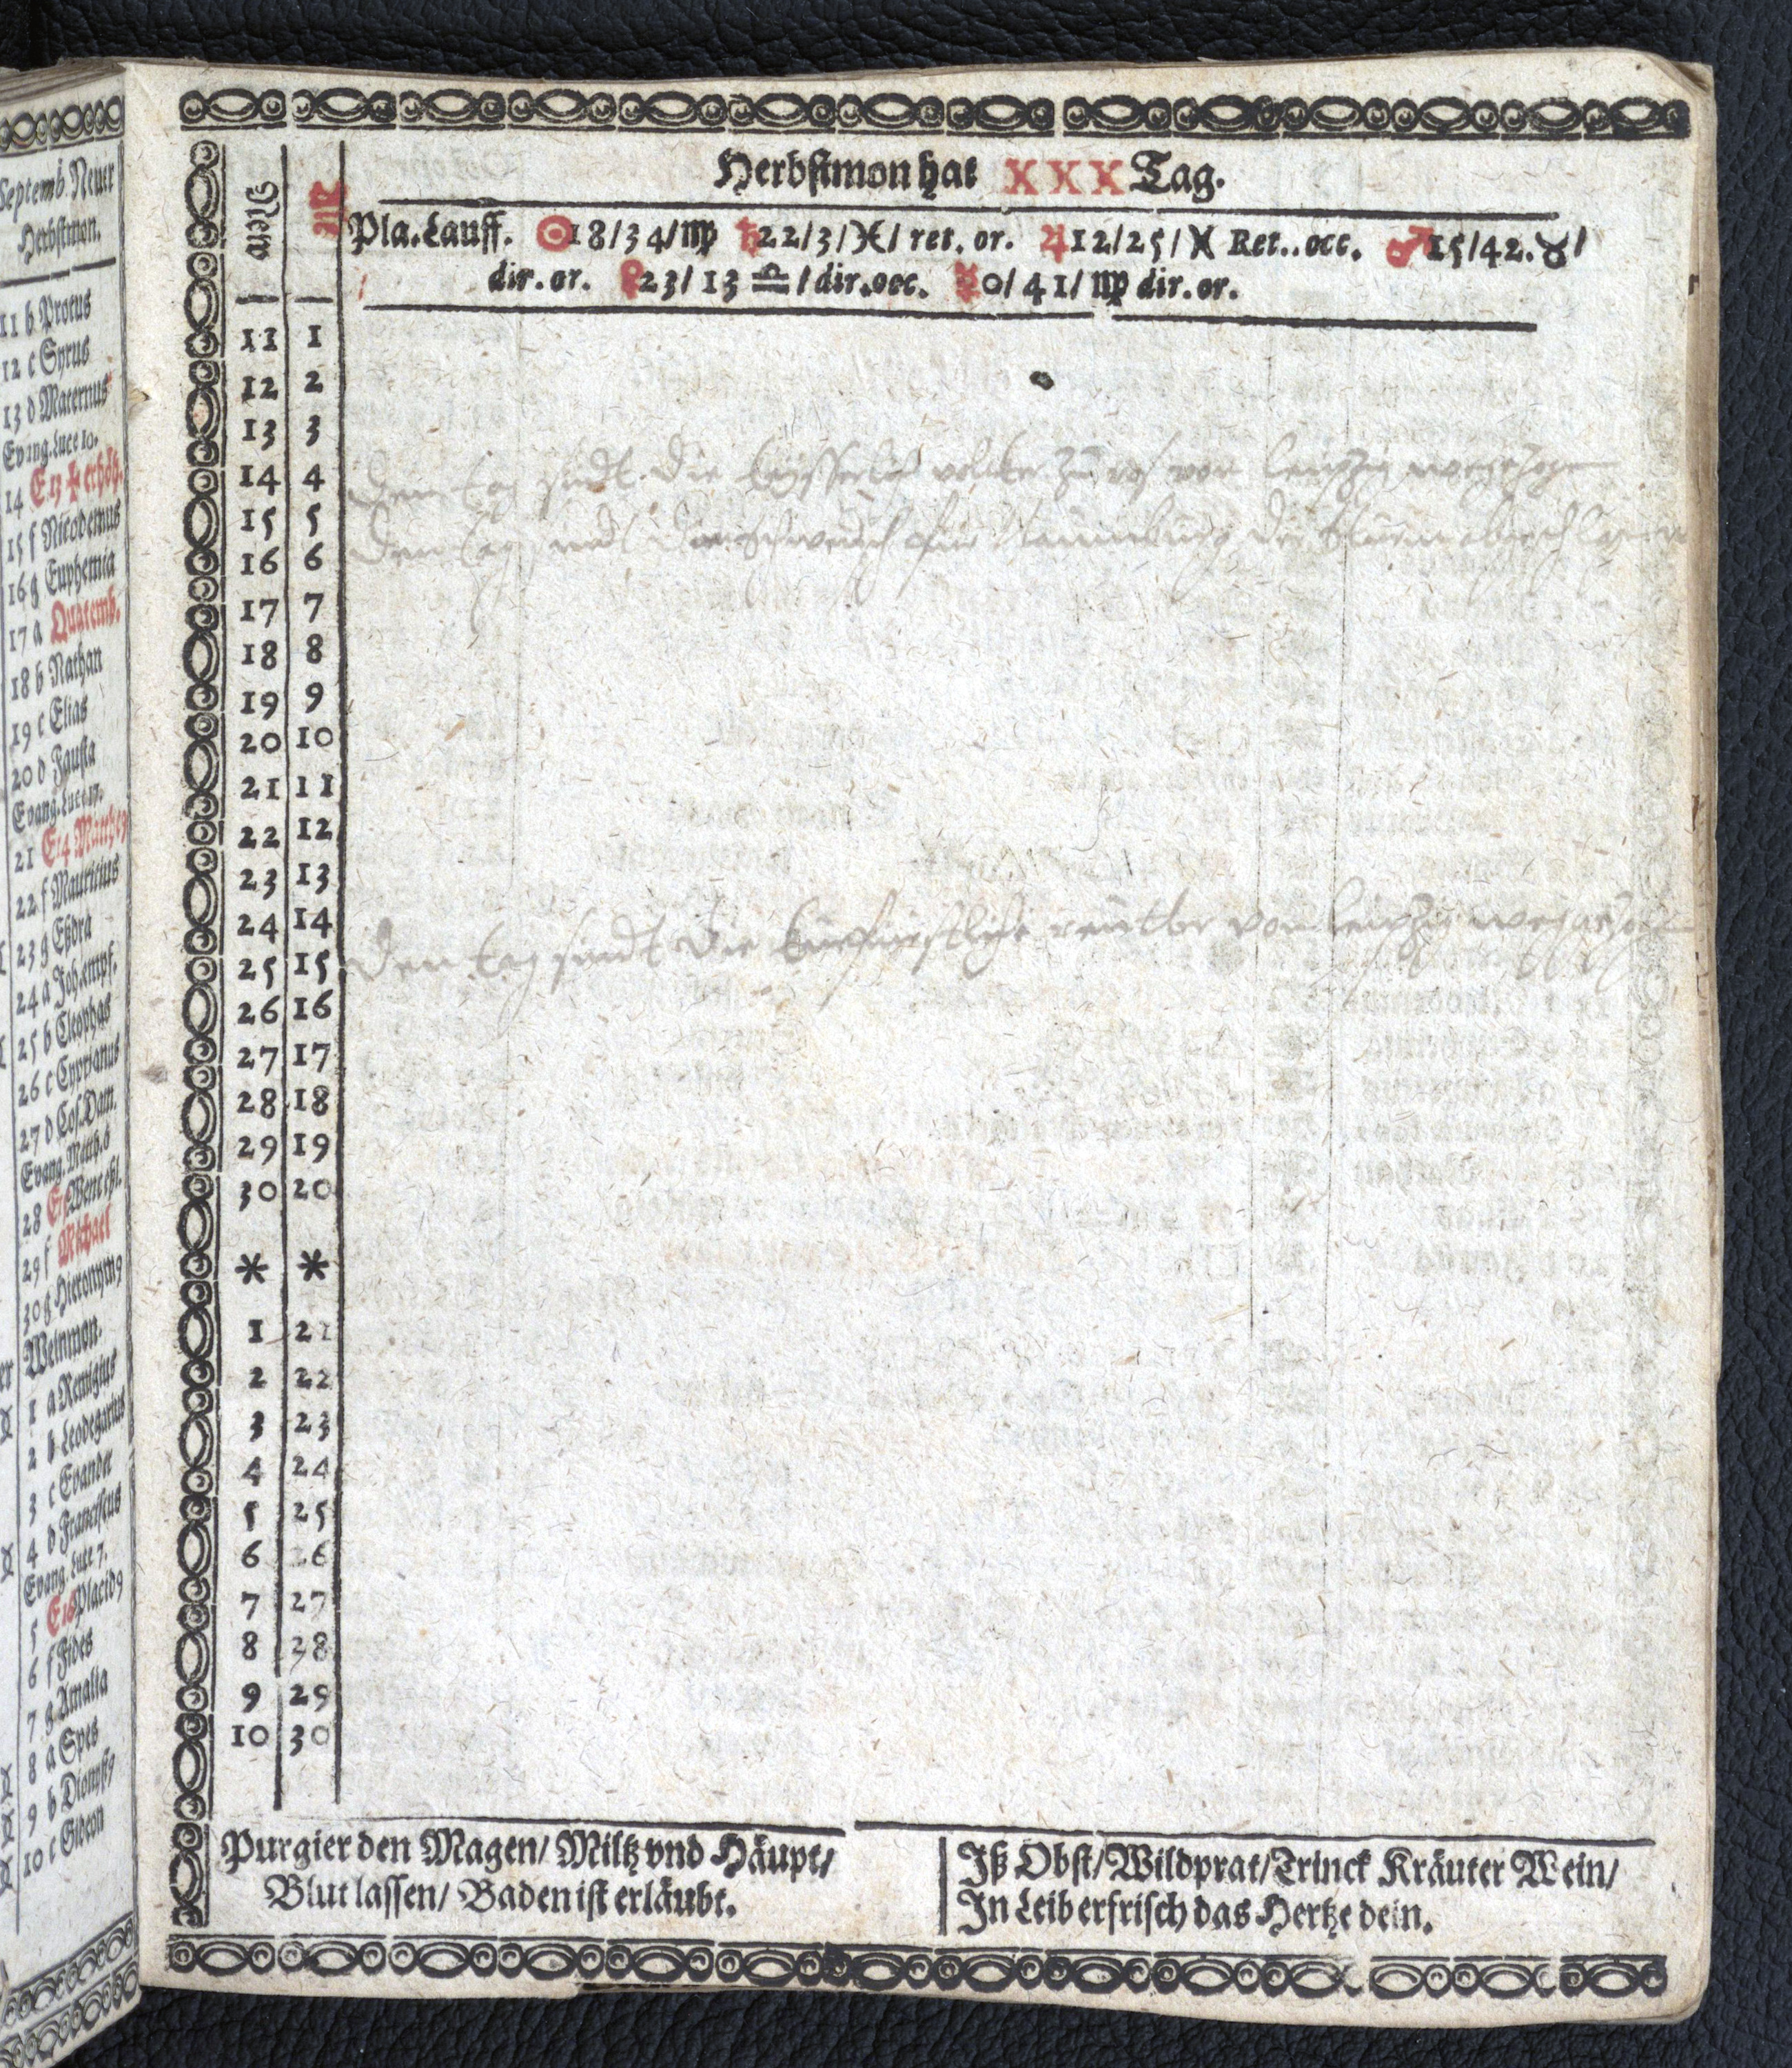 Septemb. Neuer
Herbstmon.
11 b Protus
12 c Syrus
13 d Maternus
Evang. Luce 10.
14 E 13 ✝ erhöh.
15 f Nicodemus
16 g Euphemia
17 a Quatemb.
18 b Nathan
19 c Elias
20 d Fausta
Evang. Luce 17.
21 E14 Matthe9
22 f Mauricius
23 g Eßdra
24 a Joh. empf.
25 b Cleophas
26 c Cyprianus
27 d Cos. Dam.
Evang. Matth. 6
28 Wenceßl.
29 f Michael
30 g Hieronym9
Weinmon.
1 a Remigius
2 b Leodegarius
3 c Evander
4 d Franciscus
Evang. Luce 7.
5 E16 Placid9
6 f Fides
7 g Amalia
8 a Spes
9 b Dionys9
10 c Gideon
Herbstmon hat XXX Tag.
Pla. Lauff. ☉18/34/♍ ♄22/3/♓/ ret. or. ♃12/25/♓ Ret..occ. ♂15/42.♉/
dir. or. ♀23/13 ♎/dir.occ. ☿0/41/♍ dir. or.
11 1
12 2
13 3
14 4 Den tag sindt die keysserlich volcker zu ros von leipzig
15 5 Den tag Naumburg
16 6
17 7
18 8
19 9
20 10
21 11
22 12
23 13
24 14
25 15 Den tag sindt die kurfurstliche reutter von leipzig
26 16
27 17
28 18
29 19
30 20
* *
1 21
2 22
3 23
4 24
5 25
6 26
7 27
8 28
9 29
10 30
Purgier den Magen/ Miltz vnd Häupt/
Blut lassen/ Baden ist erläubt.
Iß Obst/ Wildprat/ Trinck Kräuter Wein/
In Leib erfrisch das Hertze dein.